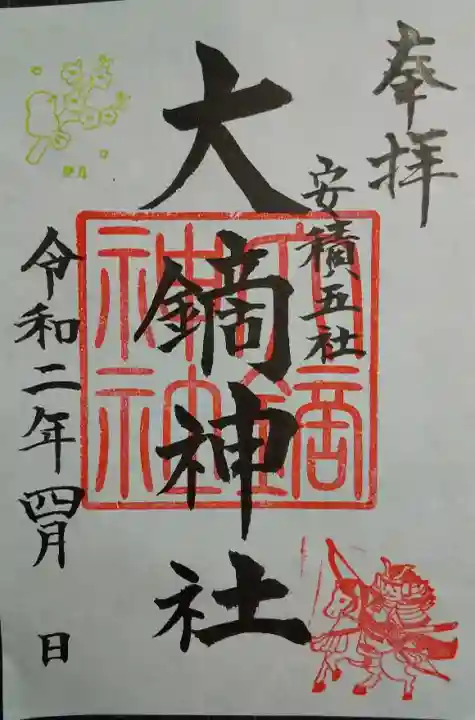 奉拝
安積五社
大鏑神社
大鏑
神社
令和二年四月 日